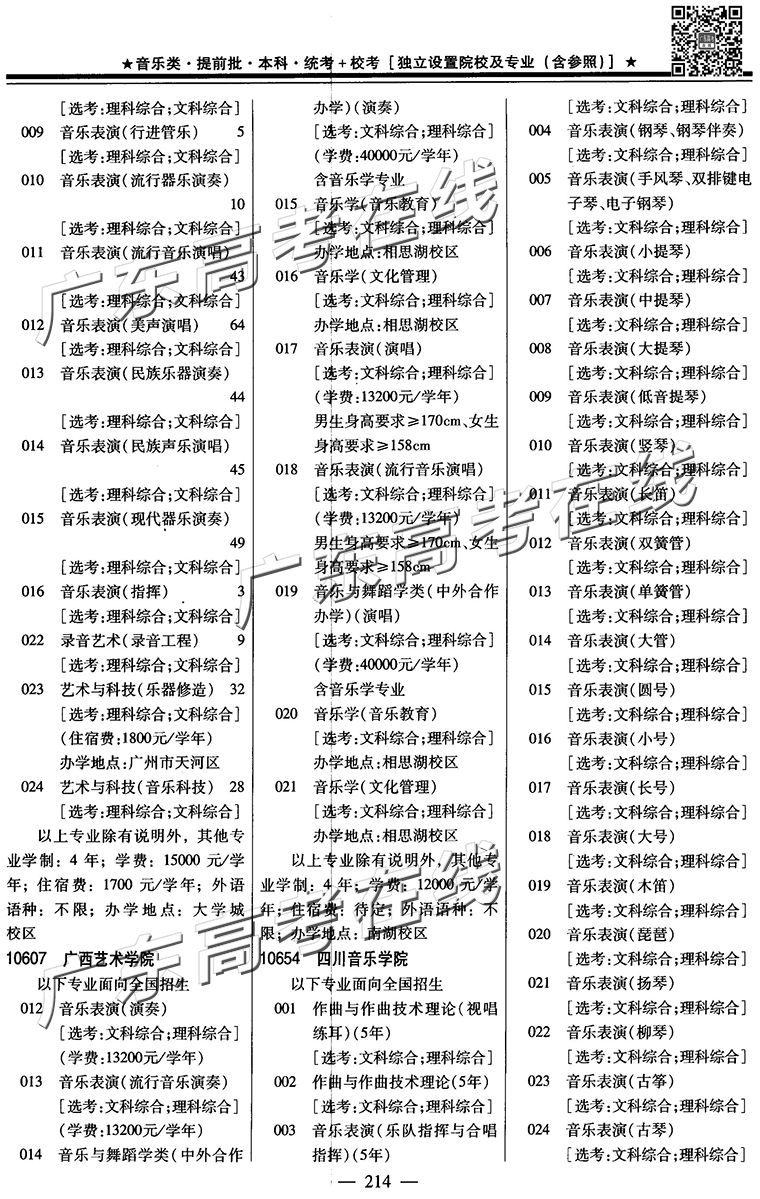 ★音乐类·提前批·本科·统考+校考[独立设置院校及专业(含参照)] ★
[选考:理科综合;文科综合]
009 音乐表演(行进管乐) 5
[选考:理科综合;文科综合]
010 音乐表演(流行器乐演奏)
10
[选考:理科综合;文科综合]
011 音乐表演(流行音乐演唱)
43
[选考:理科综合;文科综合]
012 音乐表演(美声演唱) 64
[选考:理科综合;文科综合]
013 音乐表演(民族乐器演奏)
44
[选考:理科综合;文科综合]
014 音乐表演(民族声乐演唱)
45
[选考:理科综合;文科综合]
015 音乐表演(现代器乐演奏)
49
[选考:理科综合;文科综合]
016 音乐表演(指挥) 3
[选考:理科综合;文科综合]
022 录音艺术(录音工程) 9
[选考:理科综合;文科综合]
023 艺术与科技(乐器修造) 32
[选考:理科综合;文科综合]
(住宿费:1800元/学年)
办学地点:广州市天河区
024 艺术与科技(音乐科技) 28
[选考:理科综合;文科综合]
以上专业除有说明外，其他专
业学制：4年；学费：15000元/学
年；住宿费：1700元/学年；外语
语种：不限；办学地点：大学城
校区
10607 广西艺术学院
以下专业面向全国招生
012 音乐表演(演奏)
[选考:文科综合;理科综合]
(学费:13200元/学年)
013 音乐表演(流行音乐演奏)
[选考:文科综合;理科综合]
(学费:13200元/学年)
014 音乐与舞蹈学类(中外合作
办学)(演奏)
[选考:文科综合;理科综合]
(学费:40000元/学年)
含音乐学专业
015 音乐学(音乐教育)
[选考:文科综合;理科综合]
办学地点:相思湖校区
016 音乐学(文化管理)
[选考:文科综合;理科综合]
办学地点:相思湖校区
017 音乐表演(演唱)
[选考:文科综合;理科综合]
(学费:13200元/学年)
男生身高要求≥170cm、女生
身高要求≥158cm
018 音乐表演(流行音乐演唱)
[选考:文科综合;理科综合]
(学费:13200元/学年)
男生身高要求≥170cm、女生
身高要求≥158cm
019 音乐与舞蹈学类(中外合作
办学)(演唱)
[选考:文科综合;理科综合]
(学费:40000元/学年)
含音乐学专业
020 音乐学(音乐教育)
[选考:文科综合;理科综合]
办学地点:相思湖校区
021 音乐学(文化管理)
[选考:文科综合;理科综合]
办学地点:相思湖校区
以上专业除有说明外，其他专
业学制：4年；学费：12000元/学
年；住宿费：待定；外语语种：不
限；办学地点：南湖校区
10654 四川音乐学院
以下专业面向全国招生
001 作曲与作曲技术理论(视唱
练耳)(5年)
[选考:文科综合;理科综合]
002 作曲与作曲技术理论(5年)
[选考:文科综合;理科综合]
003 音乐表演(乐队指挥与合唱
指挥)(5年)
[选考:文科综合;理科综合]
004 音乐表演(钢琴、钢琴伴奏)
[选考:文科综合;理科综合]
005 音乐表演(手风琴、双排键电
子琴、电子钢琴)
[选考:文科综合;理科综合]
006 音乐表演(小提琴)
[选考:文科综合;理科综合]
007 音乐表演(中提琴)
[选考:文科综合;理科综合]
008 音乐表演(大提琴)
[选考:文科综合;理科综合]
009 音乐表演(低音提琴)
[选考:文科综合;理科综合]
010 音乐表演(竖琴)
[选考:文科综合;理科综合]
011 音乐表演(长笛)
[选考:文科综合;理科综合]
012 音乐表演(双簧管)
[选考:文科综合;理科综合]
013 音乐表演(单簧管)
[选考:文科综合;理科综合]
014 音乐表演(大管)
[选考:文科综合;理科综合]
015 音乐表演(圆号)
[选考:文科综合;理科综合]
016 音乐表演(小号)
[选考:文科综合;理科综合]
017 音乐表演(长号)
[选考:文科综合;理科综合]
018 音乐表演(大号)
[选考:文科综合;理科综合]
019 音乐表演(木笛)
[选考:文科综合;理科综合]
020 音乐表演(琵琶)
[选考:文科综合;理科综合]
021 音乐表演(扬琴)
[选考:文科综合;理科综合]
022 音乐表演(柳琴)
[选考:文科综合;理科综合]
023 音乐表演(古筝)
[选考:文科综合;理科综合]
024 音乐表演(古琴)
[选考:文科综合;理科综合]
广东高考在线
广东高考在线
广东高考在线
— 214 —